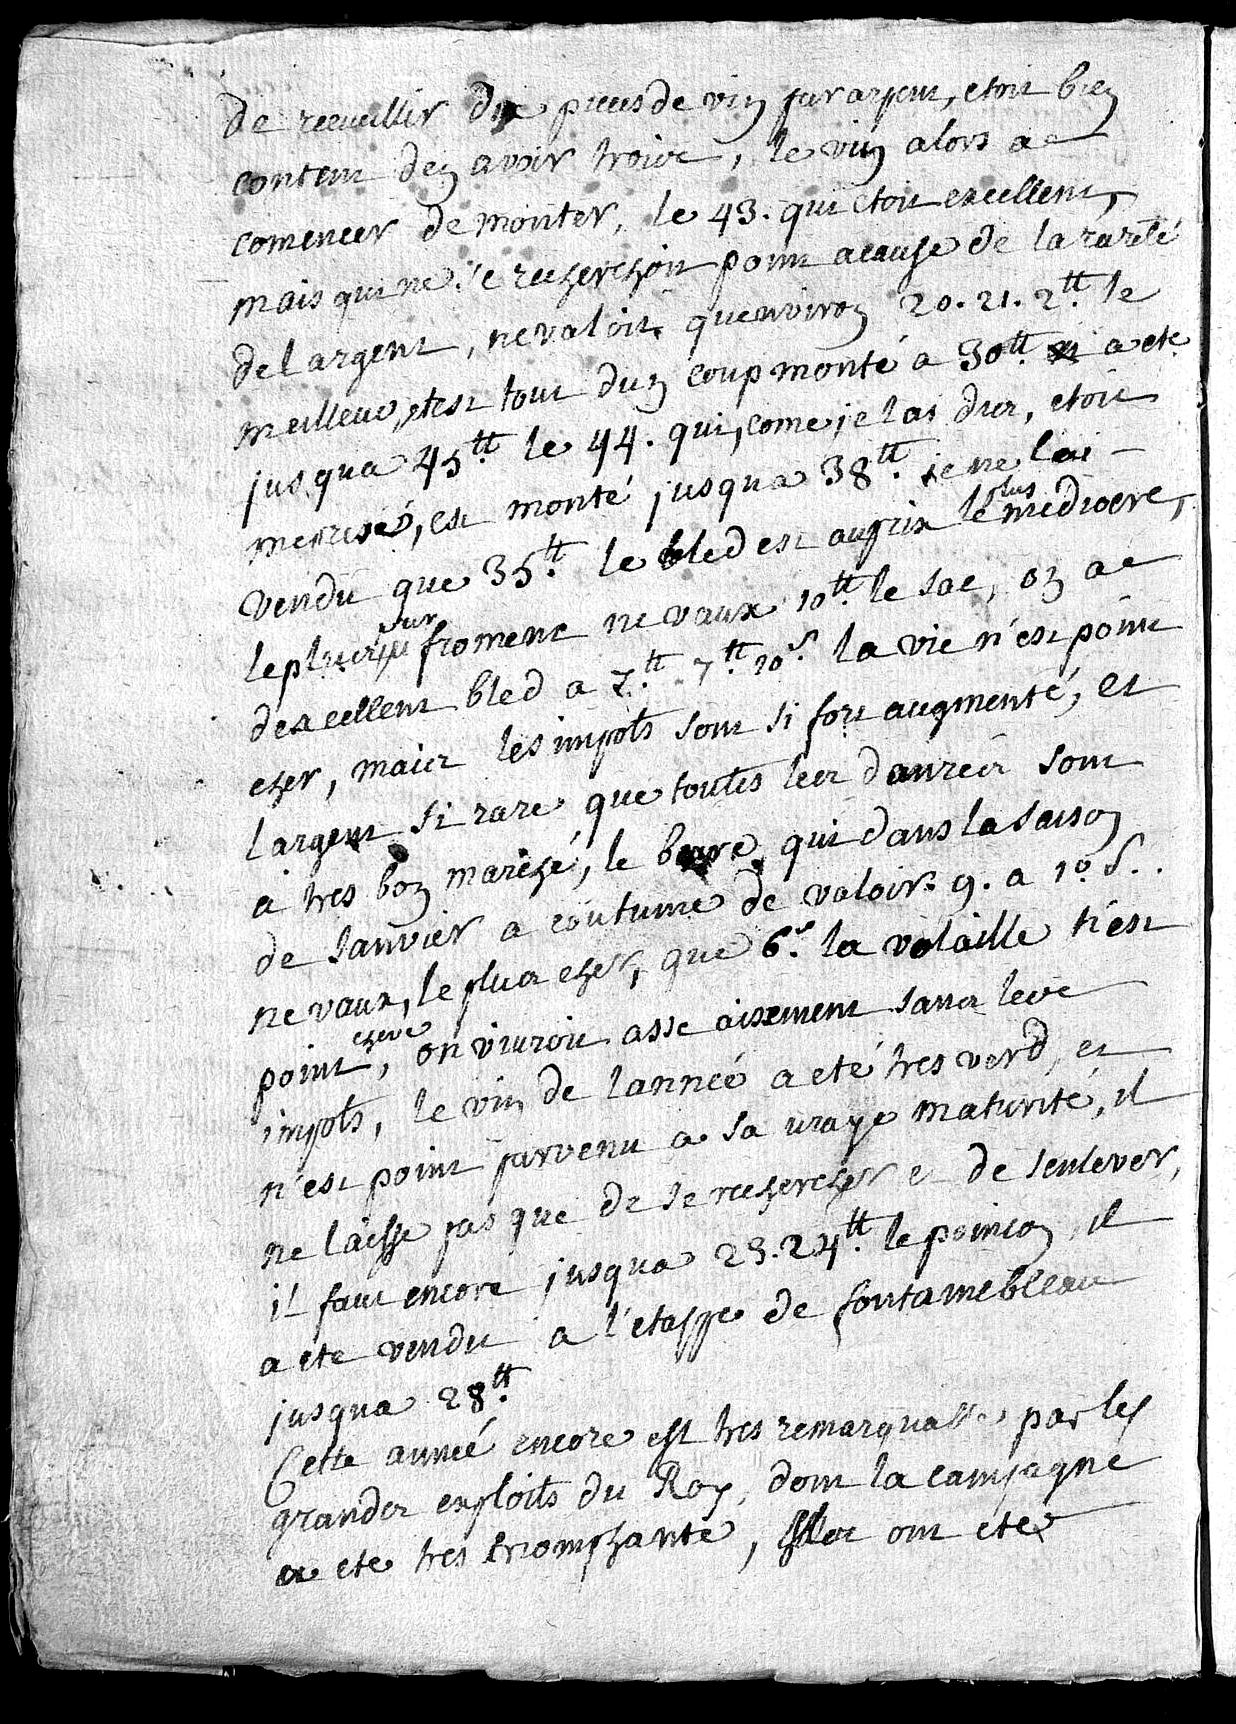 de recueillir dix pieces de vin par arpent, etoit bien
content den avoir trois, le vin alors a
comencer de monter, le 43. qui etoit excellent,
mais qui ne se recherchoit point acause de la rareté
de largent, ne valoit quenviron 20. 21. 2tt. le
meilleur, etest tout dun coup monté a 30tt. a ete
jusqua 45tt le 44. qui, come je lai dit, etoit
meprisé, est monté jusqua 38tt. je ne lai
vendu que 35tt. le bled est auprix le plus mediocre,
le plus pur froment ne vaux 10tt. le sac, on a
dexcellent bled a 7.tt 7tt. 10s. la vie n'est point
cher, mais les impots sont si fort augmenté, et
largent si rare que toutes les danrées sont
a tres bon marché, le beure qui dans la saison
de Janvier a coutume de valoir 9. a 10 s..
ne vaux, le plus cher, que 6s. la volaille n'est
point chere, on vivroit assé aisement sans les
impots, le vin de lannée a eté tres verd, et
n'est point parvenu a sa vraye maturité, il
ne laisse pas que de se rechercher e de senlever,
il faut encore jusqua 23. 24tt. le poincon, il
a ete vendu a l'etappe de fontainebleau
jusqua 28tt.
Cette année encore est tres remarquable par les
grandes exploits du Roy, dont la campagne
a ete tres triomphante, elles ont eté